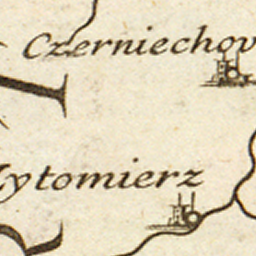 Czerniechov
Zytomierz